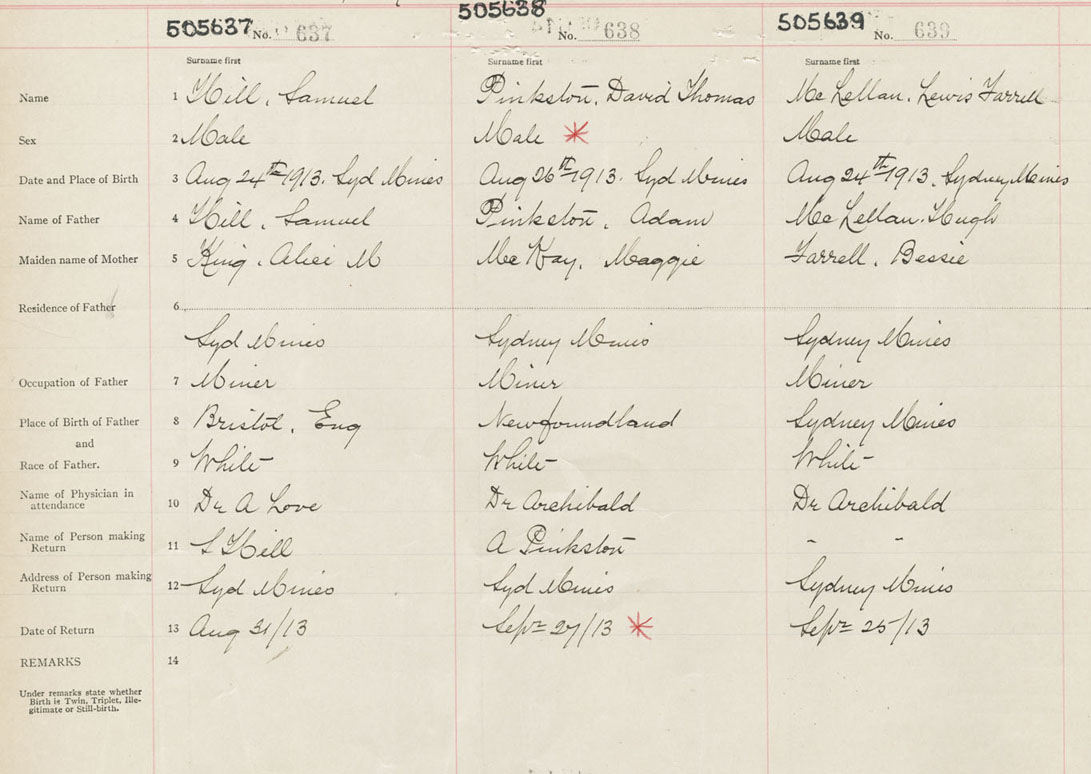 505637 No. 637 505638 No. 638 505639 No. 639
Surname first Surname first Surname first
Name 1 Hill, Samuel Pinkston, David Thomas Mc Lellan, Lewis Farrell
Sex 2 Male Male Male
Date and Place of Birth 3 Aug 24th 1913. Syd Mines Aug 26th 1913. Syd Mines Aug 24th 1913, Sydney Mines
Name of Father 4 Hill, Samuel Pinkston, Adam Mc Lellan. Hugh
Maiden name of Mother 5 King, Alice M Mc Kay, Maggie Farrell, Bessie
Residence of Father 6
Syd Mines Sydney Mines Sydney Mines
Occupation of Father 7 Miner Miner Miner
Place of Birth of Father 8 Bristol, Eng Newfoundland Sydney Mines
and
Race of Father. 9 White White White
Name of Physician in
attendance 10 Dr A Love Dr Archibald Dr Archibald
Name of Person making
Return 11 S Hill A Pinkston " "
Address of Person making
Return 12 Syd Mines Syd Mines Sydney Mines
Date of Return 13 Aug 31/13 Sept 27/13 Sept 25/13
REMARKS 14
Under remarks state whether
Birth is Twin, Triplet, Ille-
gitimate or Still-birth.